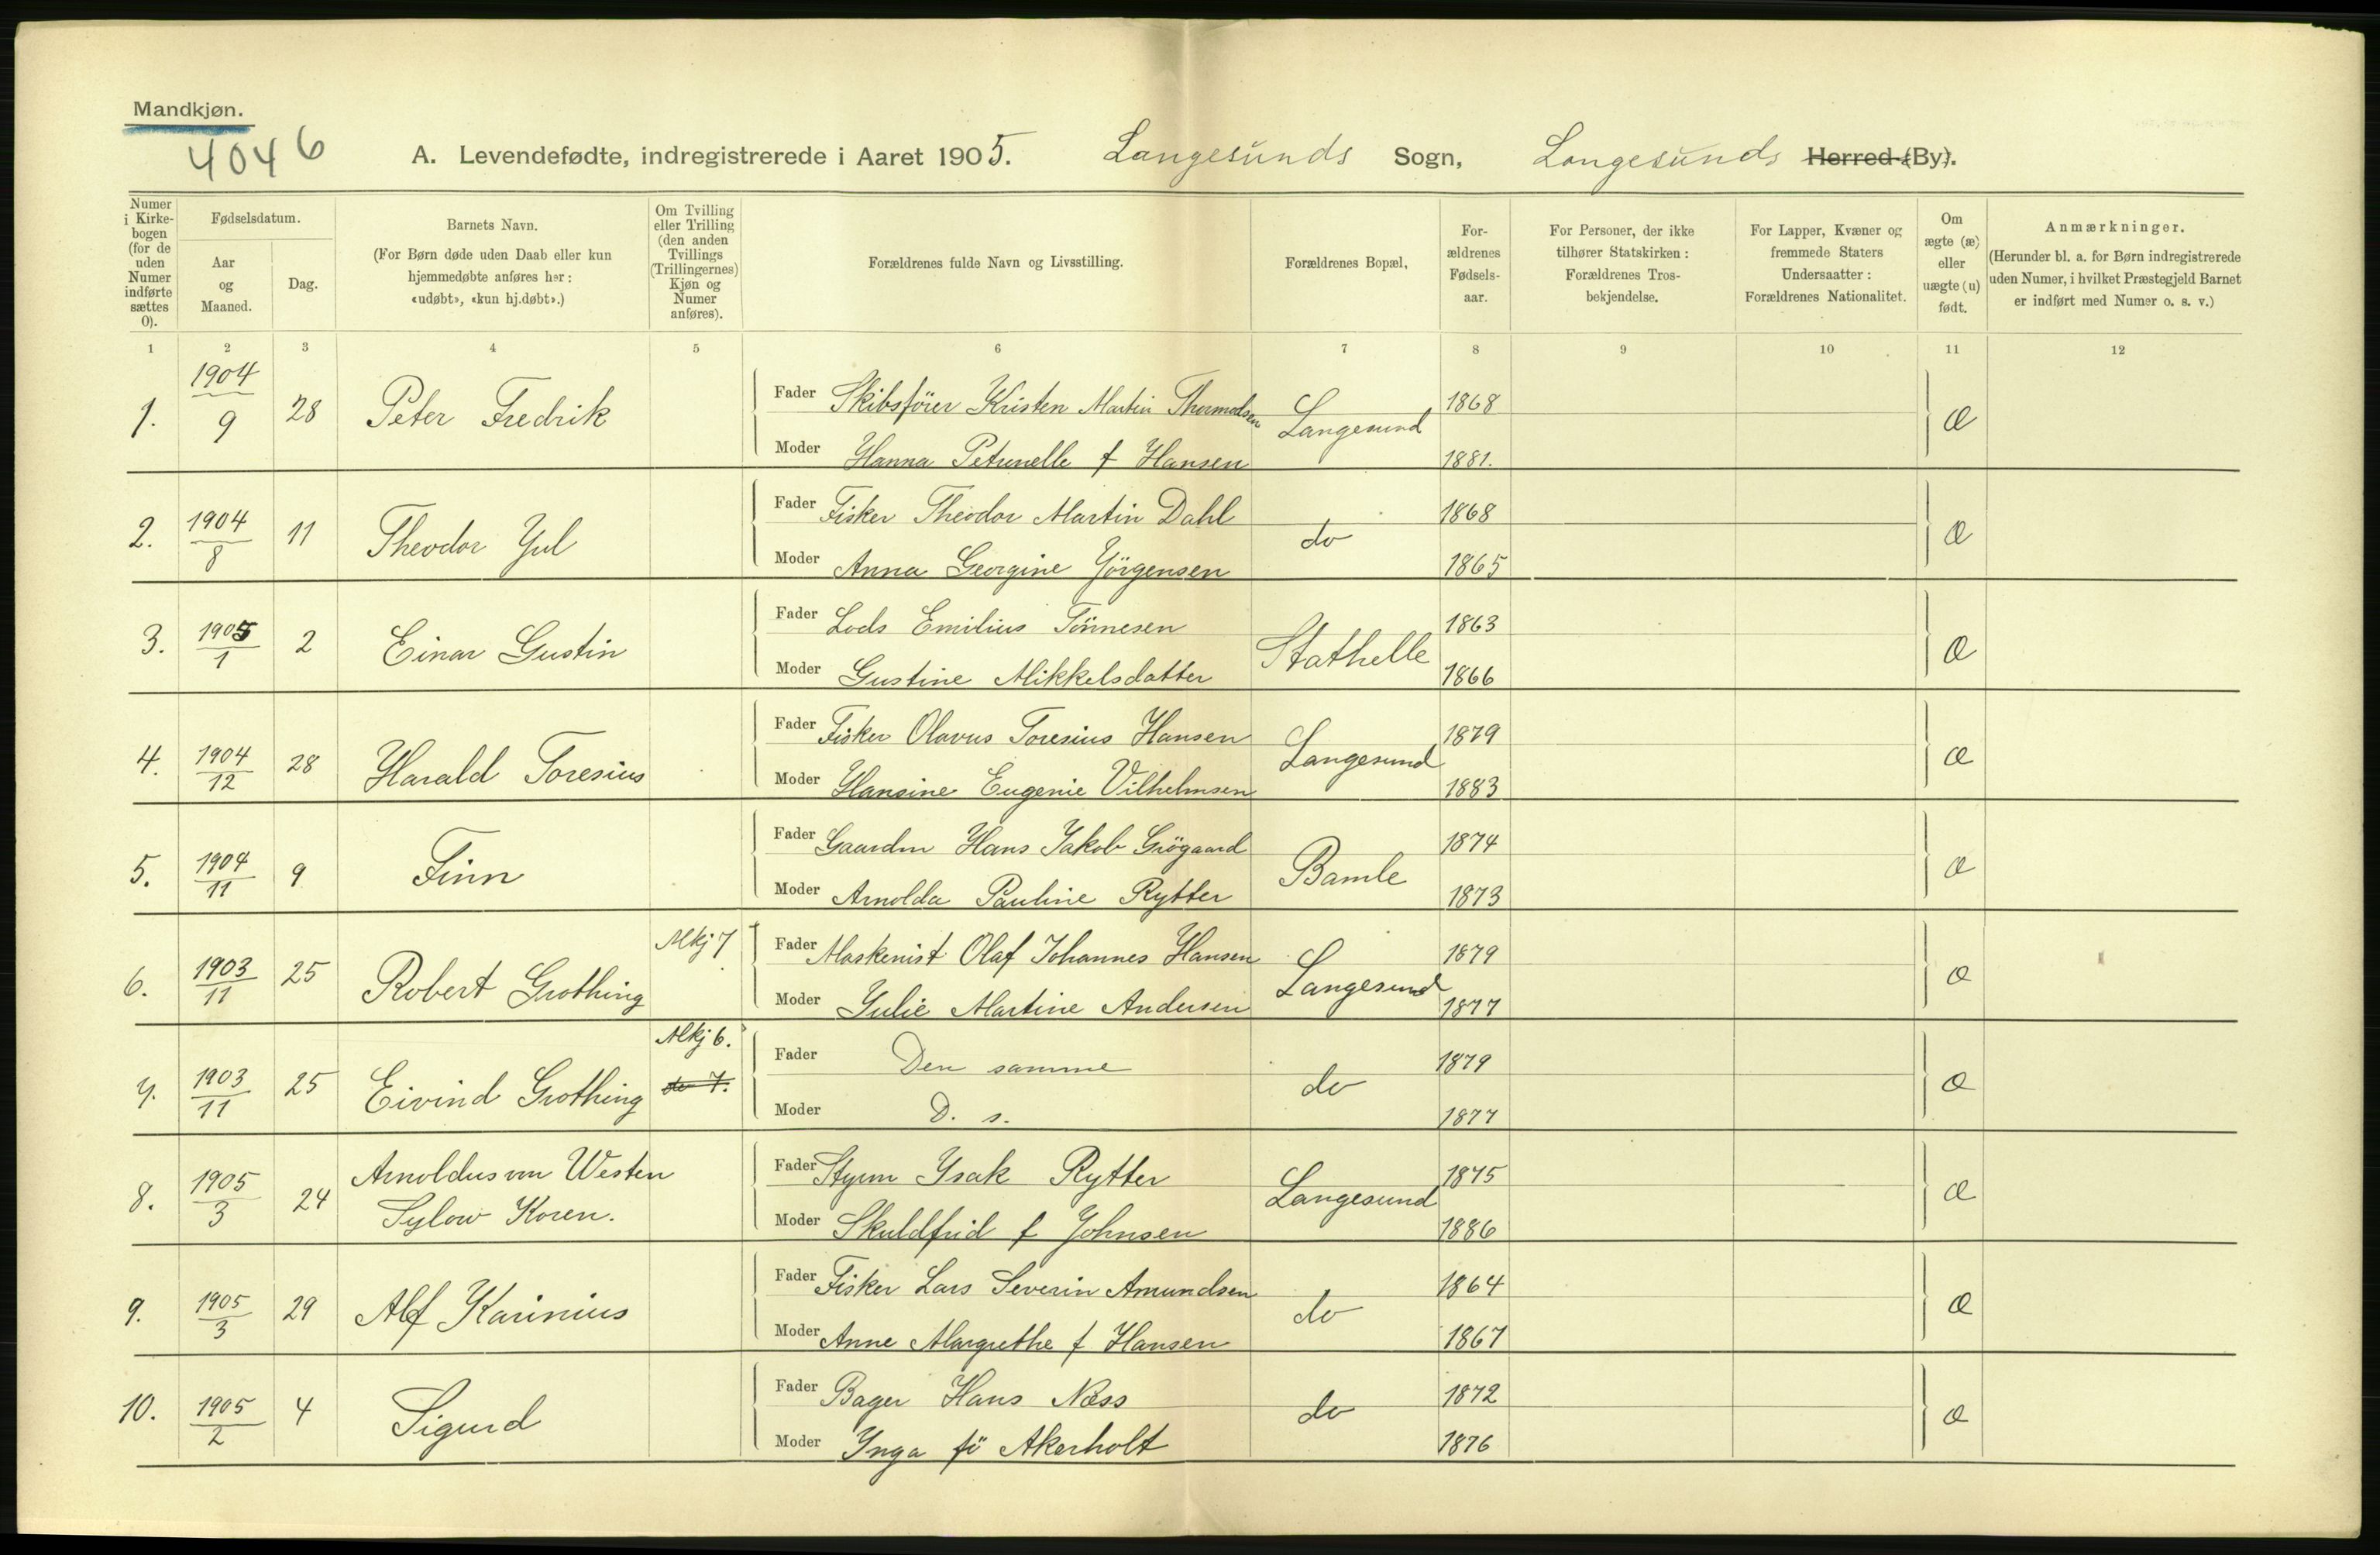 Mandkjøn.
4046
A. Levendefødte, indregistrerede i Aaret 1905. Langesunds Sogn, Langesunds Herred (By).
Numer i Kirkebogen (for de uden Numer indførte sættes 0).
Fødselsdatum.
Aar og Maaned.
Dag.
Barnets Navn.
(For Børn døde uden Daab eller kun hjemmedøbte anføres her: «udøbt», «kun hj.døbt».)
Om Tvilling eller Trilling (den anden Tvillings (Trillingernes) Kjøn og Numer anføres).
Forældrenes fulde Navn og Livsstilling.
Forældrenes Bopæl,
Forældrenes Fødselsaar.
For Personer, der ikke tilhører Statskirken: Forældrenes Trosbekjendelse.
For Lapper, Kvæner og fremmede Staters Undersaatter: Forældrenes Nationalitet.
Om ægte (æ) eller uægte (u) født.
Anmærkninger.
(Herunder bl. a. for Børn indregistrerede uden Numer, i hvilket Præstegjeld Barnet er indført med Numer o. s. v.)
1 2 3 4 5 6 7 8 9 10 11 12
1. 1904 9 28 Peter Fredrik Fader Skibsförer Kristen Martin Thormodsen Langesund 1868 æ
Moder Hanna Petrunelle f Hansen 1881.
2. 1904 8 11 Theodor Jul Fader Fisker Theodor Martin Dahl do 1868 æ
Moder Anna Georgine Jörgensen 1865
3. 1905 1 2 Einar Gustin Fader Lods Emilius Tönnesen Stathelle 1863 æ
Moder Gustine Mikkelsdatter 1866
4. 1904 12 28 Harald Toresius Fader Fisker Olavus Toresius Hansen Langesund 1879 æ
Moder Hansine Eugenie Vilhelmsen 1883
5. 1904 11 9 Finn Fader Gaardm Hans Jakob Grögaard Bamle 1874 æ
Moder Arnolda Pauline Rytter 1873
6. 1903 11 25 Robert Grothing Mkj 7 Fader Maskenist Olaf Johannes Hansen Langesund 1879 æ
Moder Julie Martine Andersen 1877
7. 1903 11 25 Eivind Grothing Mkj 6. do 7. Fader Den samme do 1879 æ
Moder D. s. 1877
8. 1905 3 24 Arnoldus von Westen Sylow Koren. Fader Styrm Isak Rytter Langesund 1875 æ
Moder Skuldfrid f Johnsen 1886
9. 1905 3 29 Alf Karinius Fader Fisker Lars Severin Amundsen do 1864 æ
Moder Anne Margrethe f Hansen 1867
10. 1905 2 4 Sigurd Fader Bager Hans Næss do 1872 æ
Moder Inga fö Akerholt 1876